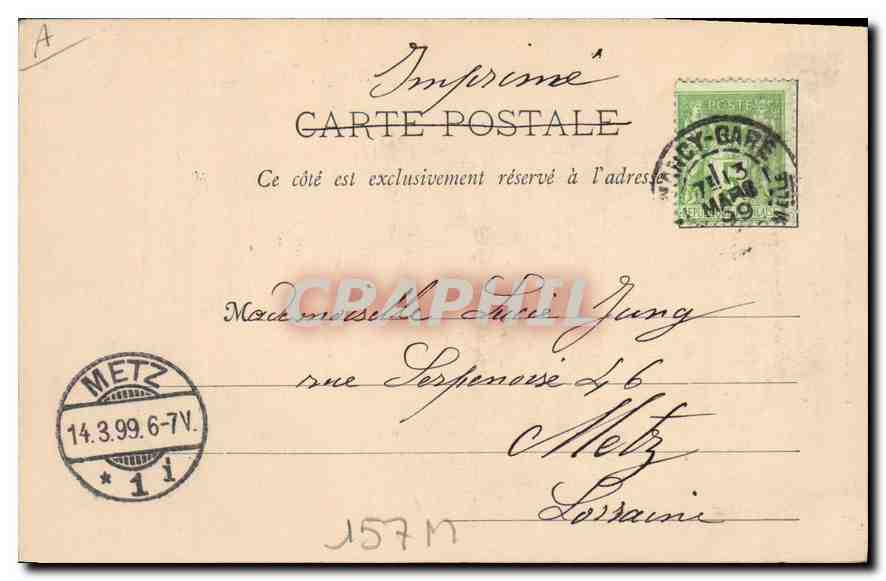 A
Imprimé
CARTE POSTALE
Ce côté est exclusivement réservé à l'adresse
POSTE
NANCY-GARE
13
MARS
99
CRAPHIL
Mademoiselle Lucie Jung
rue Serpenoise 46
Metz
Lorraine
METZ
14.3.99. 6-7V.
* 1 i
157M